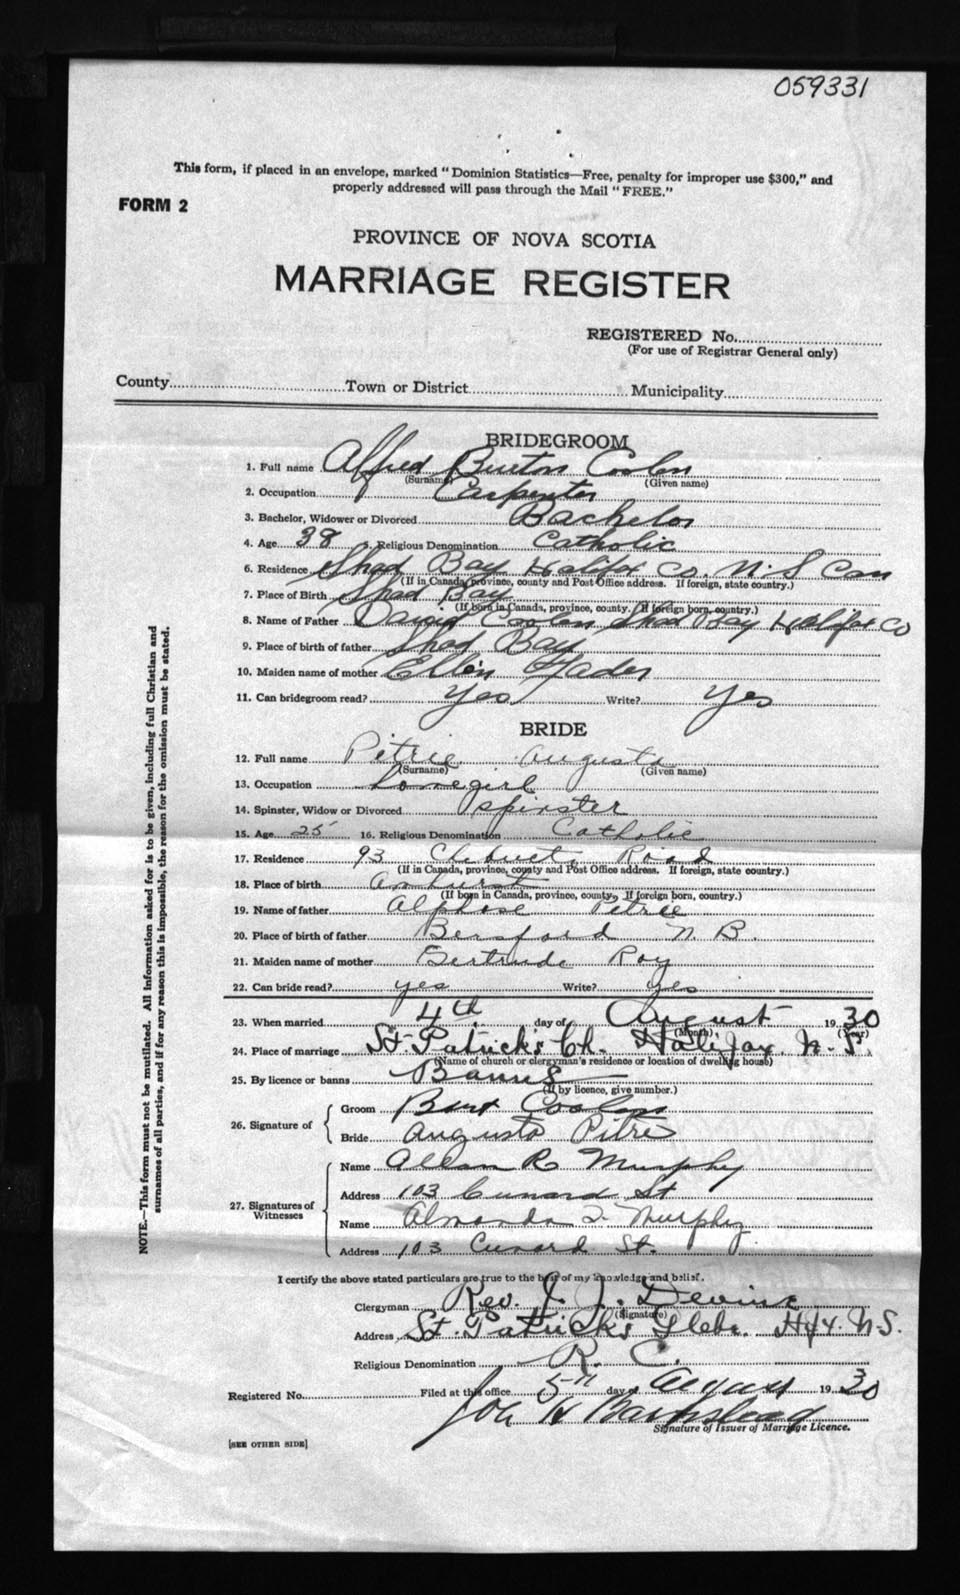 059331
This form, if placed in an envelope, marked "Dominion Statistics—Free, penalty for improper use $300," and
properly addressed will pass through the Mail "FREE."
FORM 2
PROVINCE OF NOVA SCOTIA
MARRIAGE REGISTER
REGISTERED No.
(For use of Registrar General only)
County Town or District Municipality
BRIDEGROOM
1. Full name Alfred Burton Coolen
(Surname) (Given name)
2. Occupation Carpenter
3. Bachelor, Widower or Divorced Bachelor
4. Age 38 5. Religious Denomination Catholic
6. Residence Shad Bay Halifax Co. N.S Can
(If in Canada, province, county and Post Office address. If foreign, state country.)
7. Place of Birth Shad Bay
(If born in Canada, province, county. If foreign born, country.)
8. Name of Father David Coolen Shad Bay Halifax Co
9. Place of birth of father Shad Bay
10. Maiden name of mother Ellen Fader
11. Can bridegroom read? Yes Write? Yes
BRIDE
12. Full name Pitrie Augusta
(Surname) (Given name)
13. Occupation homegirl
14. Spinster, Widow or Divorced spinster
15. Age 25 16. Religious Denomination Catholic
17. Residence 93 Chebucto Road
(If in Canada, province, county and Post Office address. If foreign, state country.)
18. Place of birth Amhurst
(If born in Canada, province, county. If foreign born, country.)
19. Name of father Alphose Petrie
20. Place of birth of father Bersford N.B.
21. Maiden name of mother Gertrude Roy
22. Can bride read? yes Write? yes
23. When married 4th day of August 1930
(Month) (Year)
24. Place of marriage St. Patrick's Ch. Halifax, N.S.
(Name of church or clergyman's residence or location of dwelling house)
25. By licence or banns Banns
(If by licence, give number.)
26. Signature of Groom Burt Coolen
Bride Augusta Pitre
27. Signatures of Witnesses Name Allan R. Murphy
Address 103 Cunard St
Name Almanda Murphy
Address 103 Cunard St.
I certify the above stated particulars are true to the best of my knowledge and belief.
Clergyman Rev. J. J. Devine
(Signature)
Address St. Patrick's Glebe. Hfx. N.S.
Religious Denomination R. C.
Registered No. Filed at this office 5th day of August 1930
H Barnstead
Signature of Issuer of Marriage Licence.
[SEE OTHER SIDE]
NOTE.—This form must not be mutilated. All information asked for is to be given, including full Christian and
surnames of all parties, and if for any reason this is impossible, the reason for the omission must be stated.